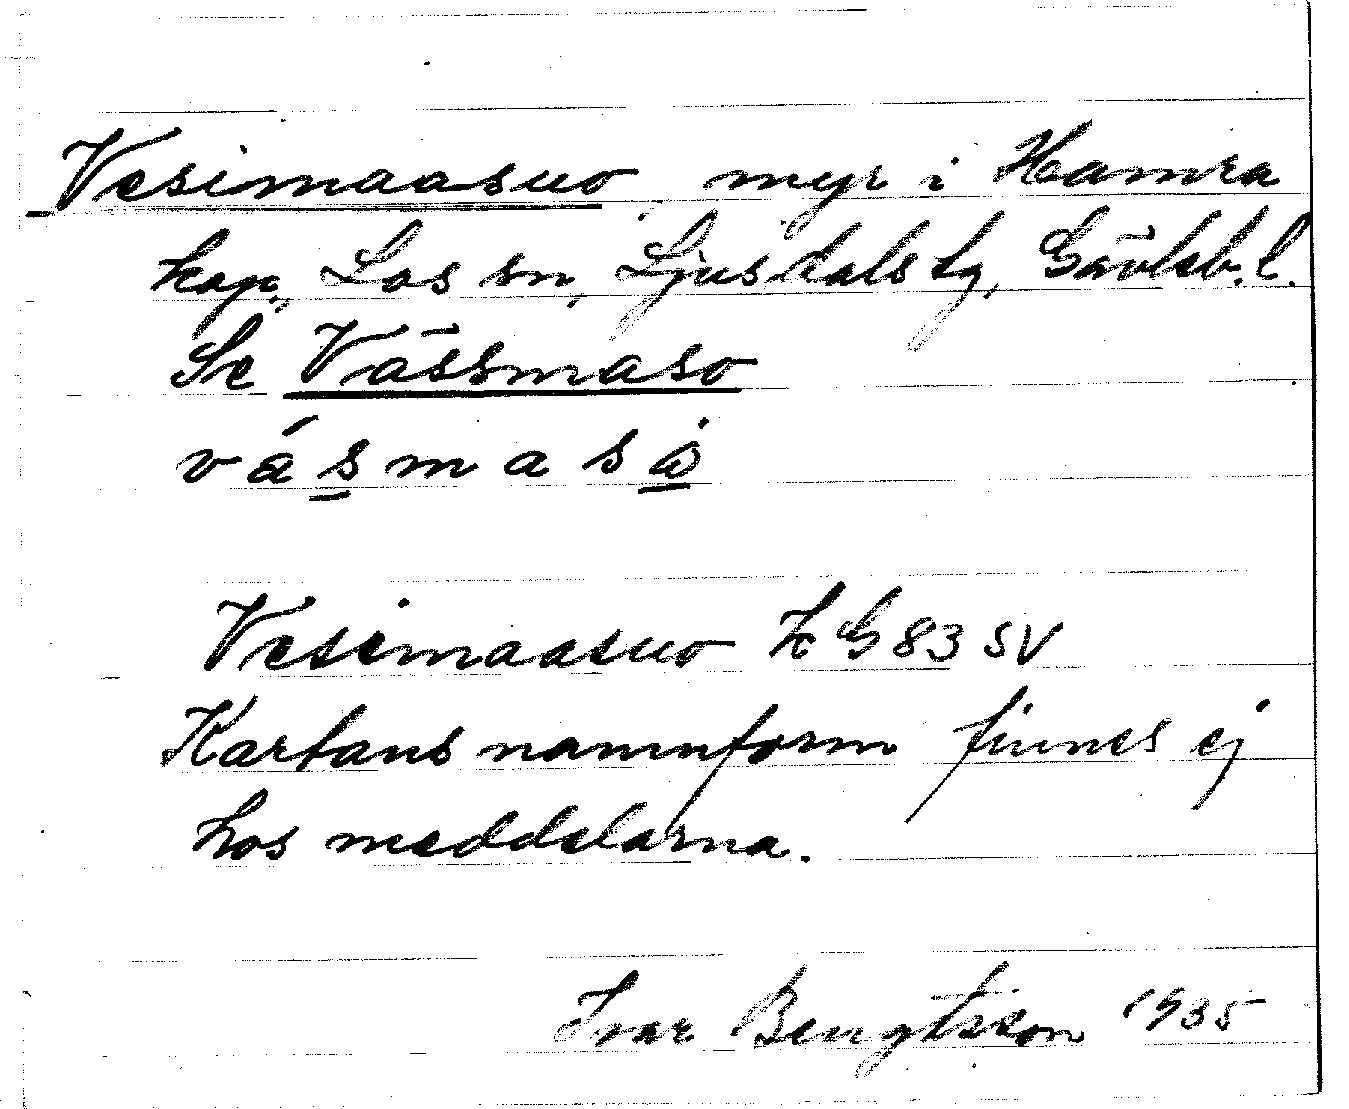 Vesimaasuo myr i Hamra
kap., Los sn, Ljusdals tg, Gävleb. l.
Se Vässmaso
v ä s m a s å
Vesimaasuo k G 83 SV
Kartans namnform finnes ej
hos meddelarna.
Ivar Bengtsson 1935